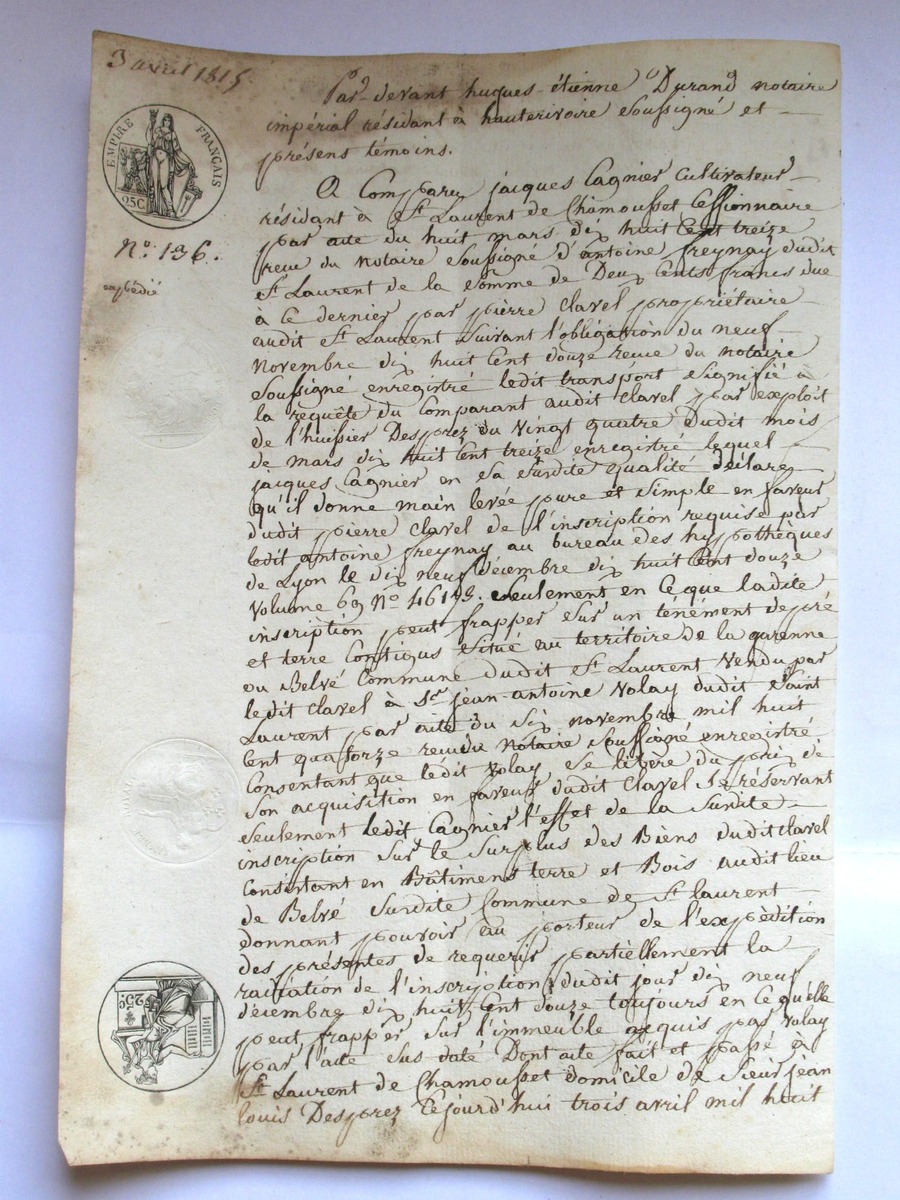 3 avril 1815
EMPIRE FRANÇAIS
25C
Nº. 136.
expédié
25C
Par-devant hugues-étienne Durand notaire
impérial résidant à hauterivoire soussigné et
présens témoins.
A Comparu jacques Cagnier Cultivateur
résidant à St. Laurent de Chamousset Cessionnaire
par acte du huit mars dix huit Cent treize
recu du notaire soussigné d'antoine freynay dudit
St. Laurent de la somme de Deux Cents francs due
à ce dernier par pierre clavel propriétaire
audit St. Laurent suivant l'obligation du neuf
novembre dix huit Cent douze recue du notaire
soussigné enregistré ledit transport signifié à
la requête du Comparant audit clavel par exploit
de l'huissier Desprez du vingt quatre dudit mois
de mars dix huit Cent treize enregistré lequel
jacques Cagnier en sa susdite qualité déclare
qu'il donne main levée pure et simple en faveur
dudit pierre clavel de l'inscription requise par
ledit antoine freynay au bureau des hypothèques
de Lyon le dix neuf décembre dix huit Cent douze
volume 69 Nº seulement en ce que ladite
inscription peut frapper sur un tènement de pré
et terre Contigus situé au territoire de la garenne
ou Belvé Commune dudit St. Laurent vendu par
ledit clavel à Sr. jean-antoine volay dudit Saint
Laurent par acte du six novembre mil huit
Cent quatorze recu du notaire soussigné enregistré
Consentant que ledit volay se libère du prix de
son acquisition en faveur dudit clavel se réservant
seulement ledit Cagnier l'effet de la susdite
inscription sur le surplus des Biens dudit clavel
Consistant en Bâtimens terre et Bois audit lieu
de Belvé susdite Commune de St. laurent
donnant pouvoir au porteur de l'expédition
des présentes de requérir partiellement la
radiation de l'inscription dudit jour dix neuf
décembre dix huit Cent douze toujours en ce qu'elle
peut frapper sur l'immeuble acquis par volay
par l'acte sus daté Dont acte fait et passé à
St. Laurent de Chamousset domicile de sieur jean
louis Desprez Cejourd'hui trois avril mil huit